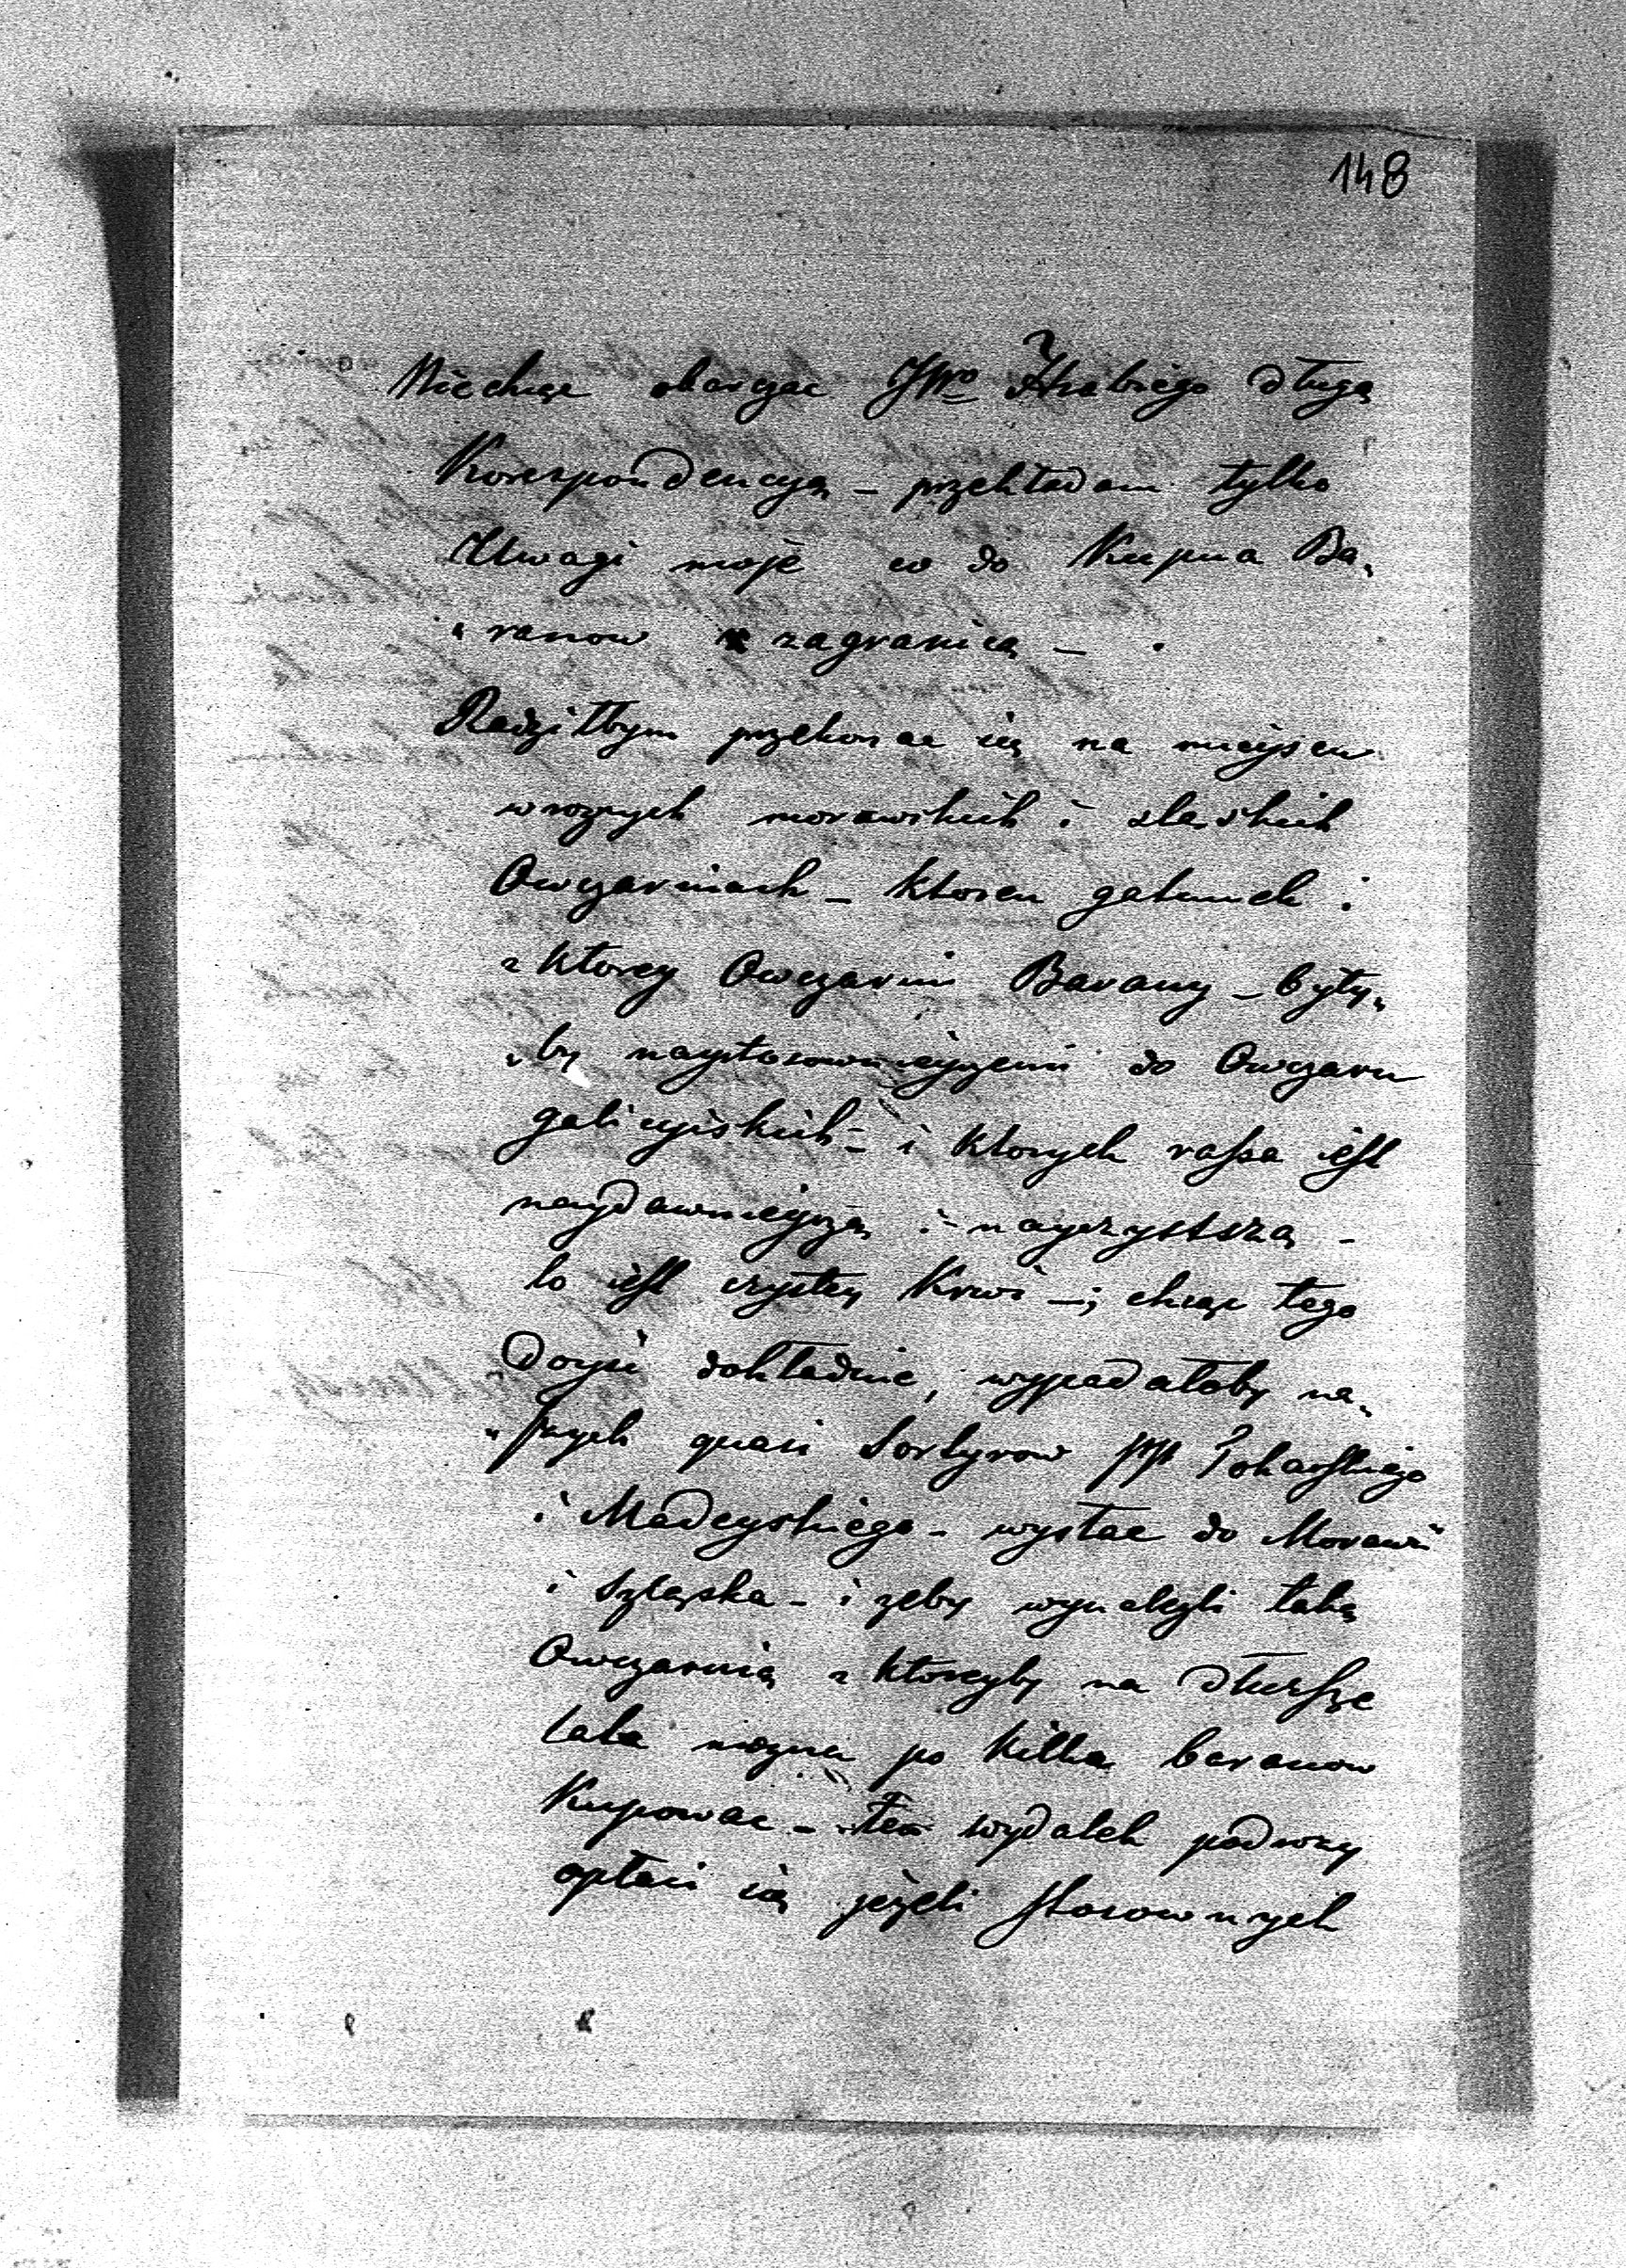 148
Niechcąc obarczac JWo Hrabiego długą
Korespondencyą – przekładam tylko
Uwagi moje co do Kupna Ba„
„ranow zagranicą –
Radziłbym przekonac się na mieyscu
w roznych morawskich i slaskich
Owczarniach – ktoren gatunek i
z ktorey Owczarni Barany – były„
„by naystosownieyszemi do Owczarn
galicyiskich – i ktorych rassa iest
naydawnieyszą i nayczystszą –
to iest czystey Krwi –; chcąc tego
doyść dokładnie, wypadałoby na„
„szych quasi Sortyrow pp Pokarskiego
i Madeyskiego – wysłac do Morawii
i Szląska – i zeby wynalezli taką
Owczarnią z ktoreyby na dłuższe
lata mozna po kilka baranow
Kupowac – ten wydatek podrozy
opłaci się jeżeli stosownych